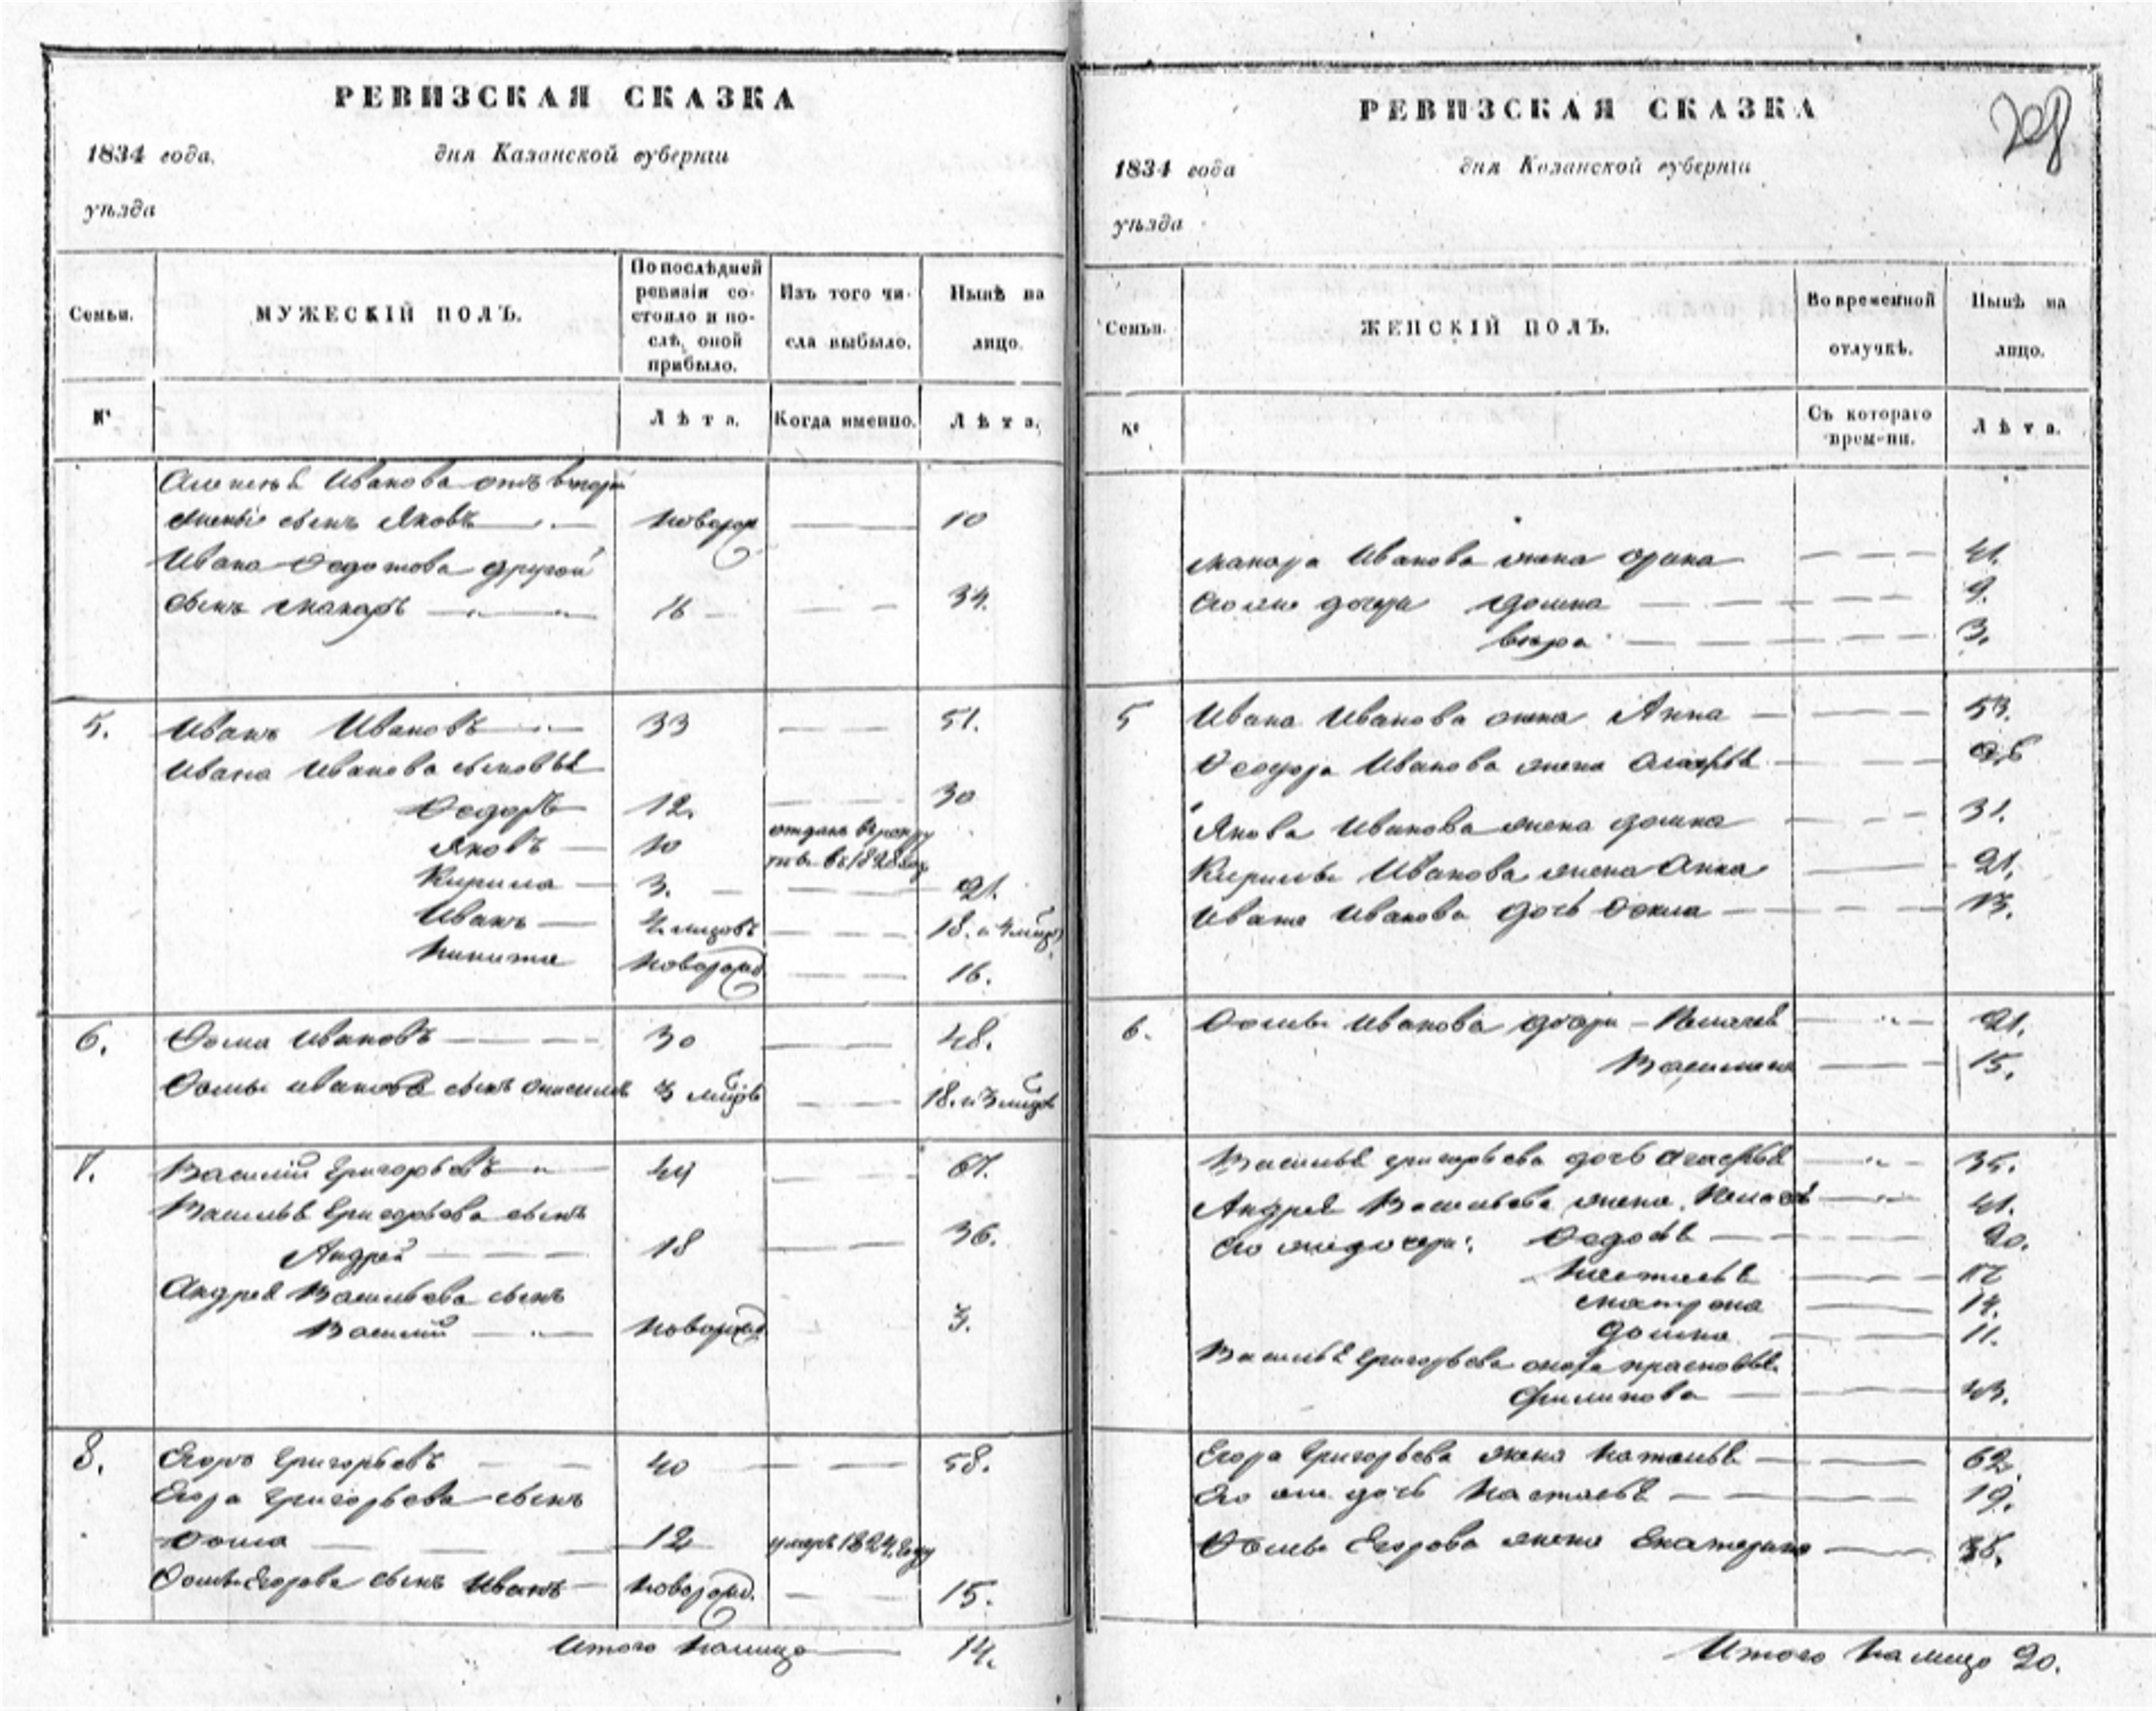 РЕВИЗСКАЯ СКАЗКА
1834 года. дня Казанской губерніи
уѣзда
Семьи. МУЖЕСКІЙ ПОЛЪ. По послѣдней ревизіи состояло и послѣ оной прибыло. Изъ того числа выбыло. Нынѣ на лицо.
№ Лѣта. Когда именно. Лѣта.
Алексѣя Иванова отъ второй
жены сынъ Яковъ новорож 10
Ивана Ѳедотова другой
сынъ Макаръ 16 34.
5. Иванъ Ивановъ 33 51.
Ивана Иванова сыновья
Ѳедоръ 12. 30
Яковъ 10 отданъ въ рекруты въ 1828 году
Кирила 3. 21.
Иванъ 4 мѣсецовъ 18. и 4 мѣсец
Никита новорожд 16.
6. Ѳома Ивановъ 30 48.
Ѳомы Иванова сынъ 3 мѣсец 18. и 3 мѣсец
7. Василій Григорьевъ 49 67.
Василья Григорьева сынъ
Андрей 18 36.
Андрея Васильева сынъ
Василій новорожд 3.
8. Егоръ Григорьевъ 40 58.
Егора Григорьева сынъ
Ѳома 12 умеръ 1824 году
Ѳомы Егорова сынъ Иванъ новорожд. 15.
Итого налицо 14.
РЕВИЗСКАЯ СКАЗКА
1834 года дня Казанской губерніи
уѣзда
Семьи. ЖЕНСКІЙ ПОЛЪ. Во временной отлучкѣ. Нынѣ на лицо.
№ Съ котораго времени. Лѣта.
Макара Иванова жена Орина 41.
Его же дочери Домна 9.
Вѣра 3.
5 Ивана Иванова жена Анна 53.
Ѳедора Иванова жена 26
Якова Иванова жена Домна 31.
Кирилы Иванова жена Анна 21.
Ивана Иванова дочь Ѳекла 13.
6. Ѳомы Иванова дочери Пелагея 21.
Василиса 15.
Василья Григорьева дочь Агафья 35.
Андрея Васильева жена Пелагея 41.
Его же дочери: Ѳедосья 20.
Настасья 17
Матрона 14.
Домна 11.
Василья Григорьева сноха Прасковья
Филипова 43.
Егора Григорьева жена Наталья 62.
Его же дочь Настасья 19.
Ѳомы Егорова жена Екатерина 36.
Итого налицо 20.